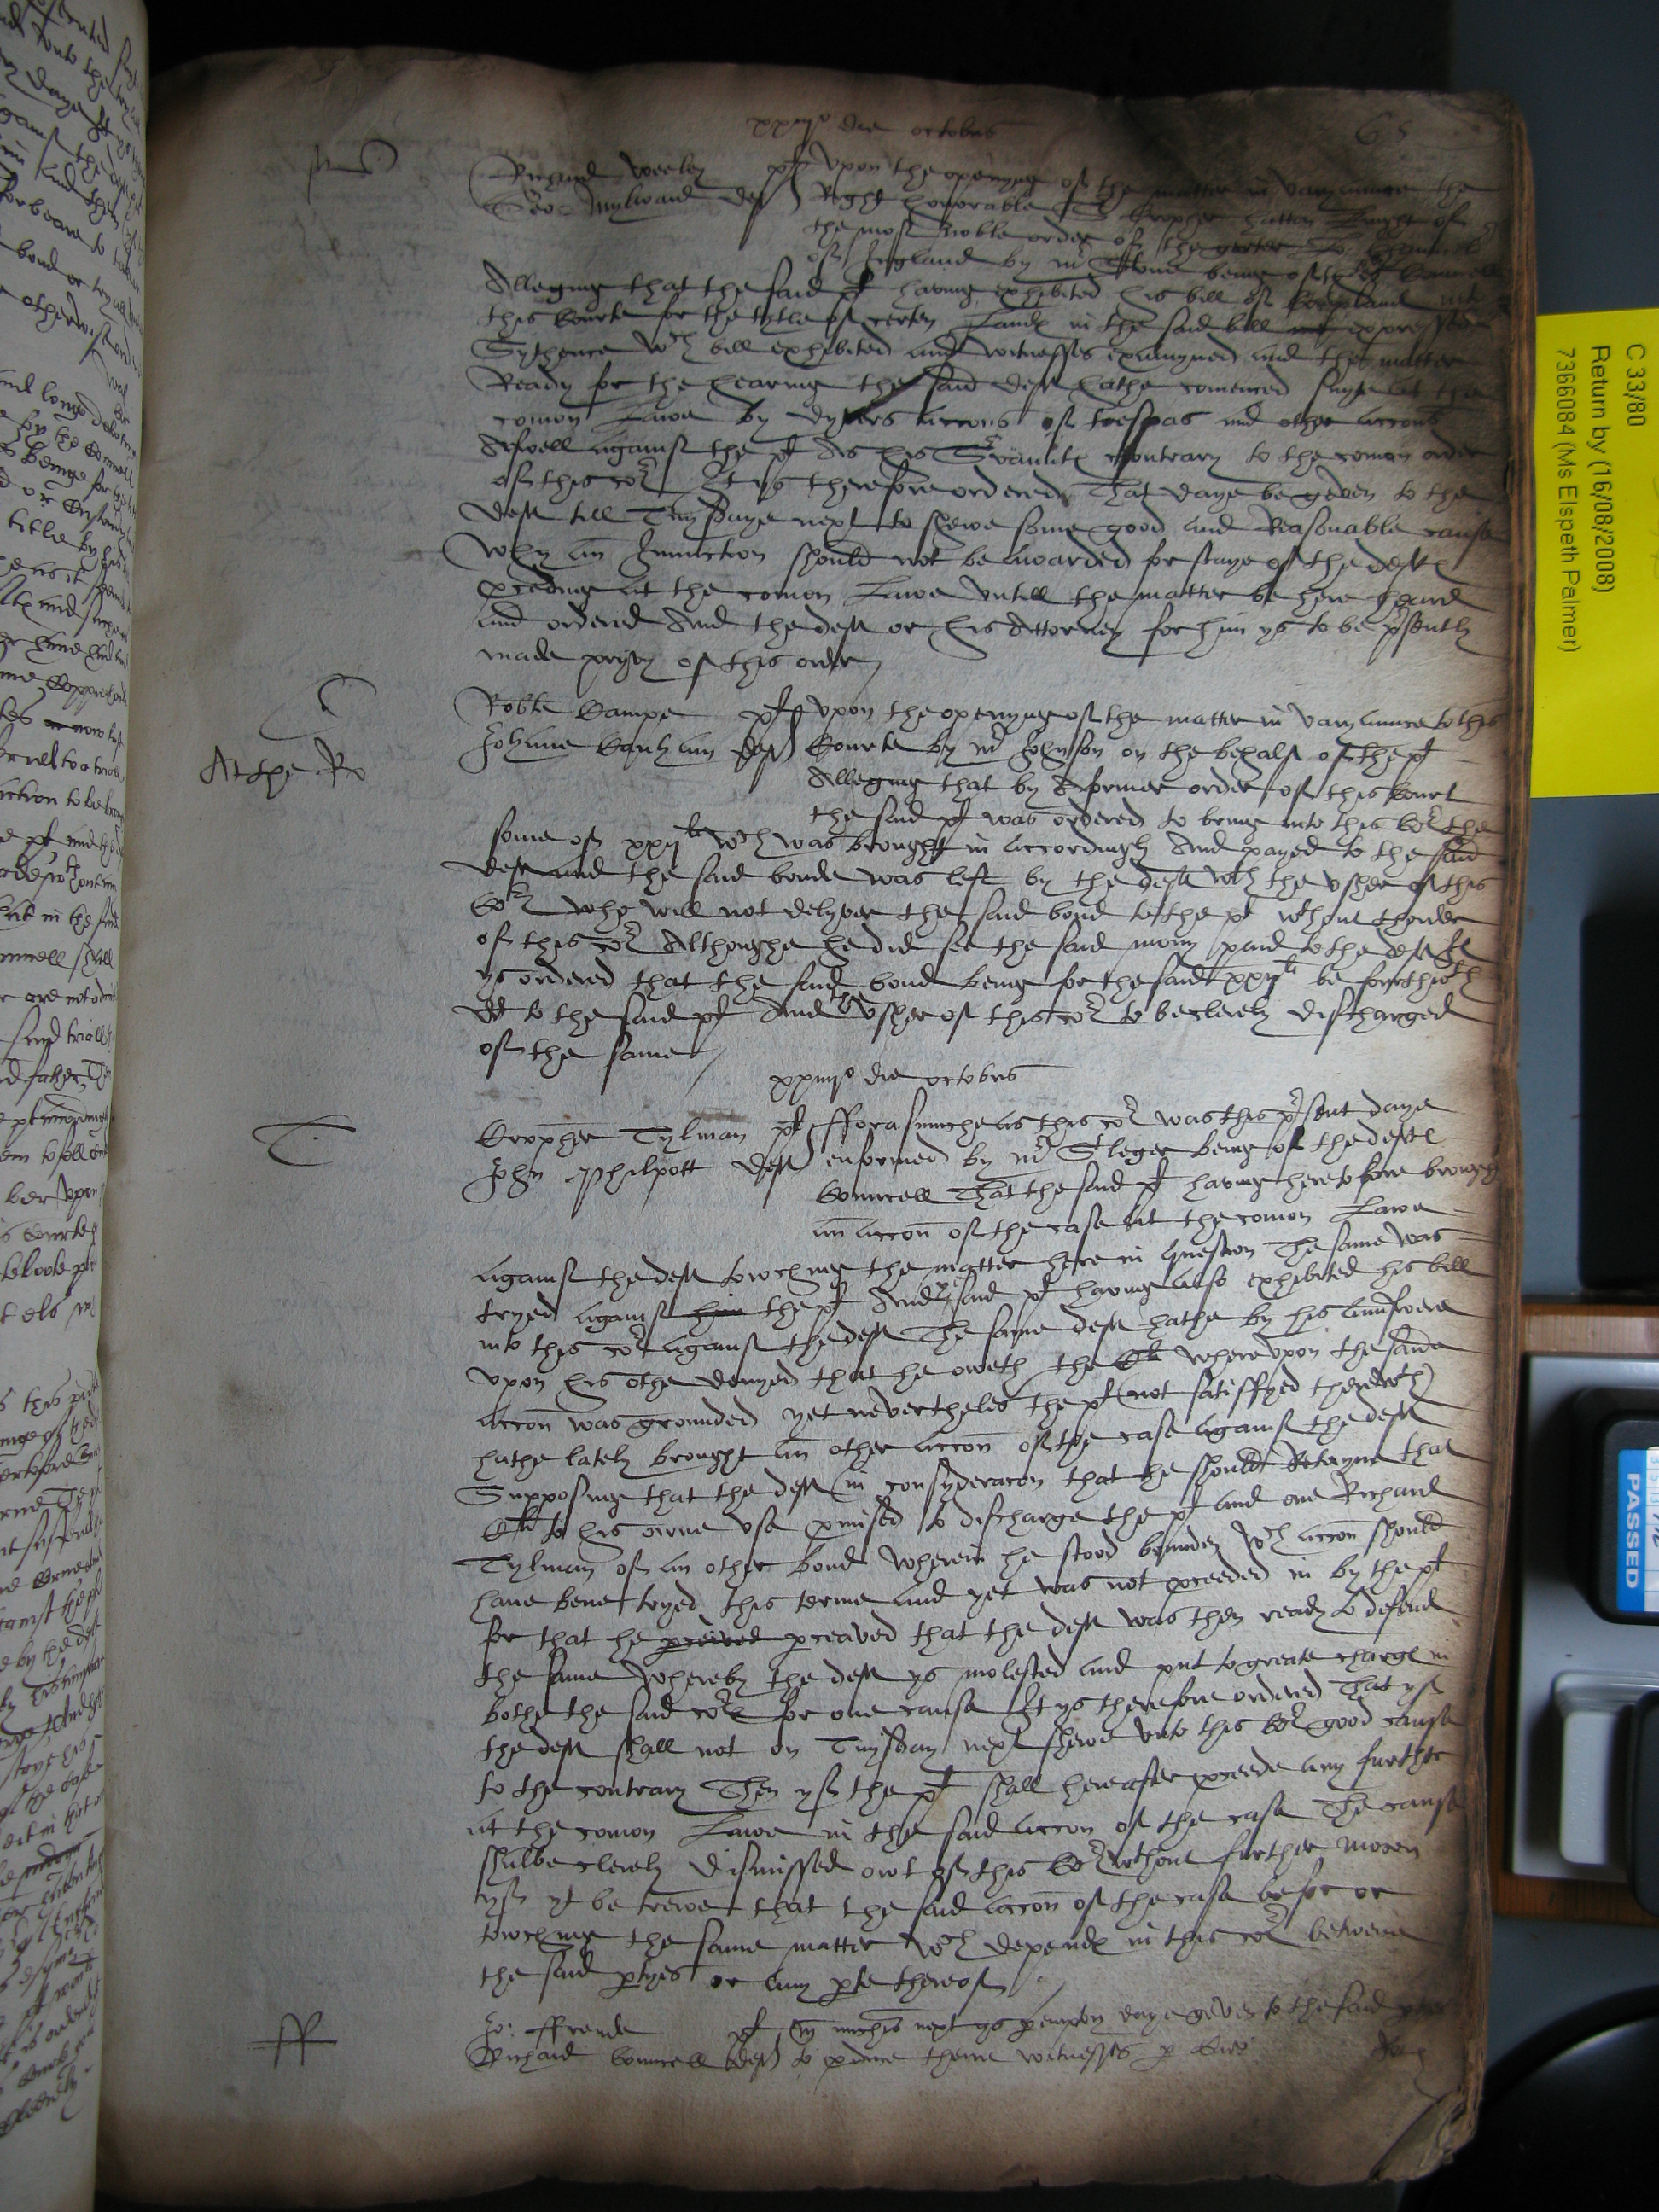 xxiijo die octobris
65
Richard Weeley plt Upon the openynge of the matter in varyaunce the
Geo: Mylward deft Right honorable Sr Cropher Hatton Knight of
the most Noble order of the garter Lo: Chauncelor
of England by mr being of the plts Councell
Alleging that the said plt having exhibited his bill of Complaint into
this Courte for the tytle of certen Landes in the said bill expressed
Sythence wch bill exhibited and witnesses examyned and the matter
Ready for the hearing the said deft hathe comenced suyte at the
comon Lawe by dyvers accons of trespas and other accons
Aswell against the plt As his Tenants contrary to the comon order
of this cort It ys therefore ordered That daye be geven to the
deft till Tuysdaye next to shewe some good and Reasonable cause
Why an Iniunction should not be awarded for staye of the deftes
pceding at the comon Lawe untill the matter be here heard
and ordered And the deft or his Attorney for him ys to be psently
made pryvy of this order
Robte Campe plt Upon the openynge of the matter in varyaunce to this
Johane deft Courte by mr Johnson on the behalf of the plt
Alleging that by A former order of this Court
the said plt was ordered to bring into this Cort the
some of xxijli wch was brought in accordingly And payed to the said
deft and the said bonde was left by the deft wth the usher of this
Cort who will not delyver the said bond to the plt wthout thorder
of this cort Althoughe he did see the said mony paid to the deft It
ys ordered that the said bond being for the said xxijli be forthwth
dd to the said plt And the usher of this cort to be clerely discharged
of the same
xxiiijo die octobris
Cropher Tylman plt Fforasmuche as this cort was this psent daye
John Philpott deft enformed by mr St leger being of the deftes
Councell That the said plt having heretofore brought
an accon of the case at the comon Lawe
against the deft towching the matter here in question The same was
tryed against him the plt And the said plt having also exhibited his bill
into this cort against the deft The same deft hathe by his aunswere
upon his othe denyed that he oweth the whereupon the saide
accon was grounded yet nevertheles the plt (not satisfyed therewth)
hathe lately brought an other accon of the case against the deft
Supposing that the deft (in consyderacon that he should Retayne that
to his owne use pmised to discharge the plt and one Richard
Tylman of an other bond wherein he stood bounden wch accon should
have bene tryed this terme and yet was not pceeded in by the plt
for that he pceived pceaved that the deft was then ready to defend
the same Whereby the deft ys molested and put to greate charge in
bothe the said cortes for one cause It ys therefore ordered That yf
the deft shall not on Tuysday next shewe unto this Cort good cause
to the contrary Then yf the plt shall hereafter pceede any further
at the comon Lawe in the said accon of the case The cause
shalbe clerely dismissed owt of this Cort wthout further mocon
yf yt be trewe that the said accon of the case be for or
towching the same matter wch dependes in this cort betwene
the said ptyes or any pte thereof
Jo: Ffrende plt In michis next ys pemptory daye geven to the said ptes
Richard Councell deft to pduce theire witnesses p
At the Ro
T
ff
C 33/80
Return by (16/08/2008)
7366084 (Ms Elspeth Palmer)
PASSED